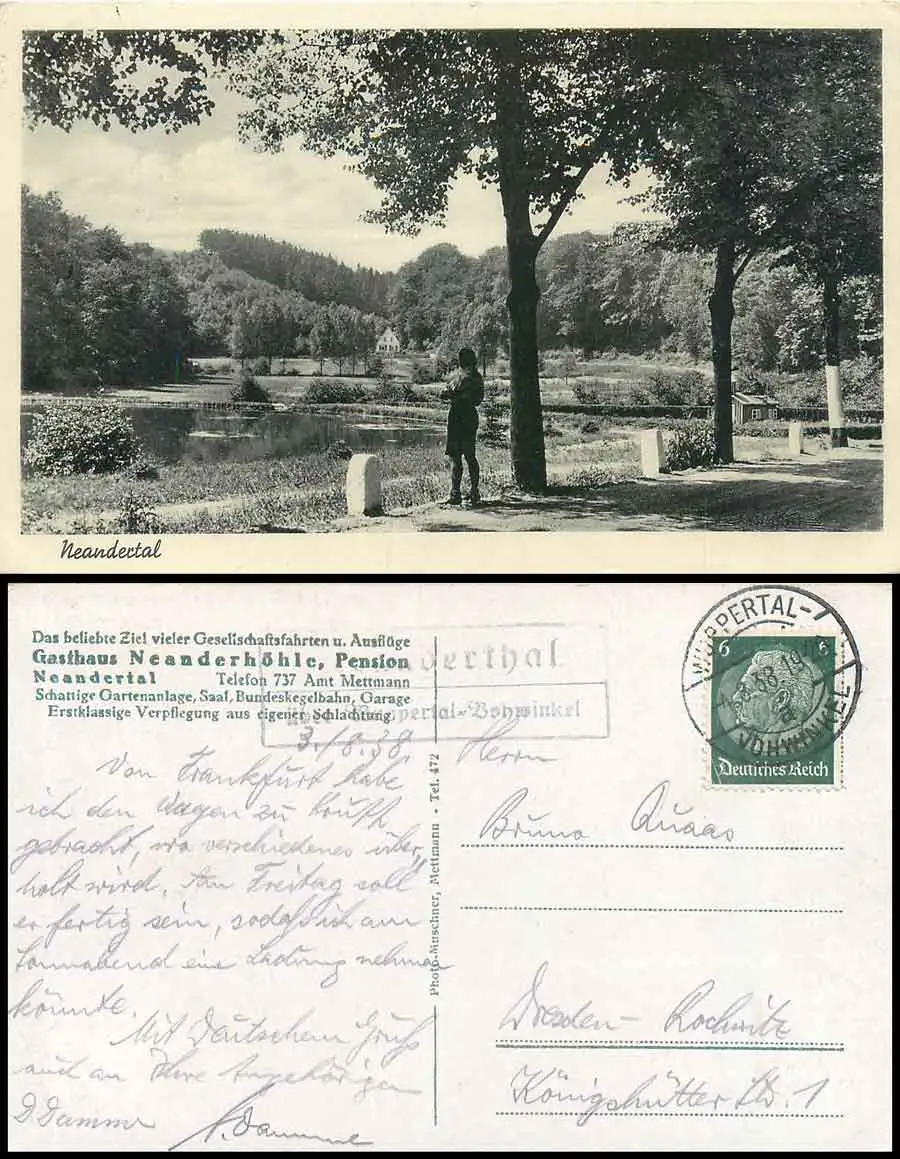 Neandertal
Das beliebte Ziel vieler Gesellschaftsfahrten u. Ausflüge
Gasthaus Neanderhöhle, Pension
Neandertal Telefon 737 Amt Mettmann
Schattige Gartenanlage, Saal, Bundeskegelbahn, Garage
Erstklassige Verpflegung aus eigener Schlachtung.
Neanderthal
über Wuppertal-Vohwinkel
WUPPERTAL-
VOHWINKEL
a
6 6
Deutsches Reich
3./8.38
Von Frankfurt habe
ich den Wagen zu
gebracht, wo verschiedenes über,
holt wird. Am Freitag soll
er fertig sein, sodaß ich am
Sonnabend eine Ladung nehmen
könnte.
Mit Deutschem Gruß
auch an Ihre Angehörigen
D. Damme
Damme
Photo-Muschner, Mettmann - Tel. 472
Herrn
Bruno Quaas
Dresden - Rochwitz
Königshütter Str. 1